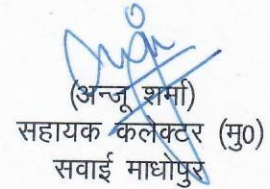 (अन्जू शर्मा)
सहायक कलेक्टर (मु0)
सवाई माधोपुर